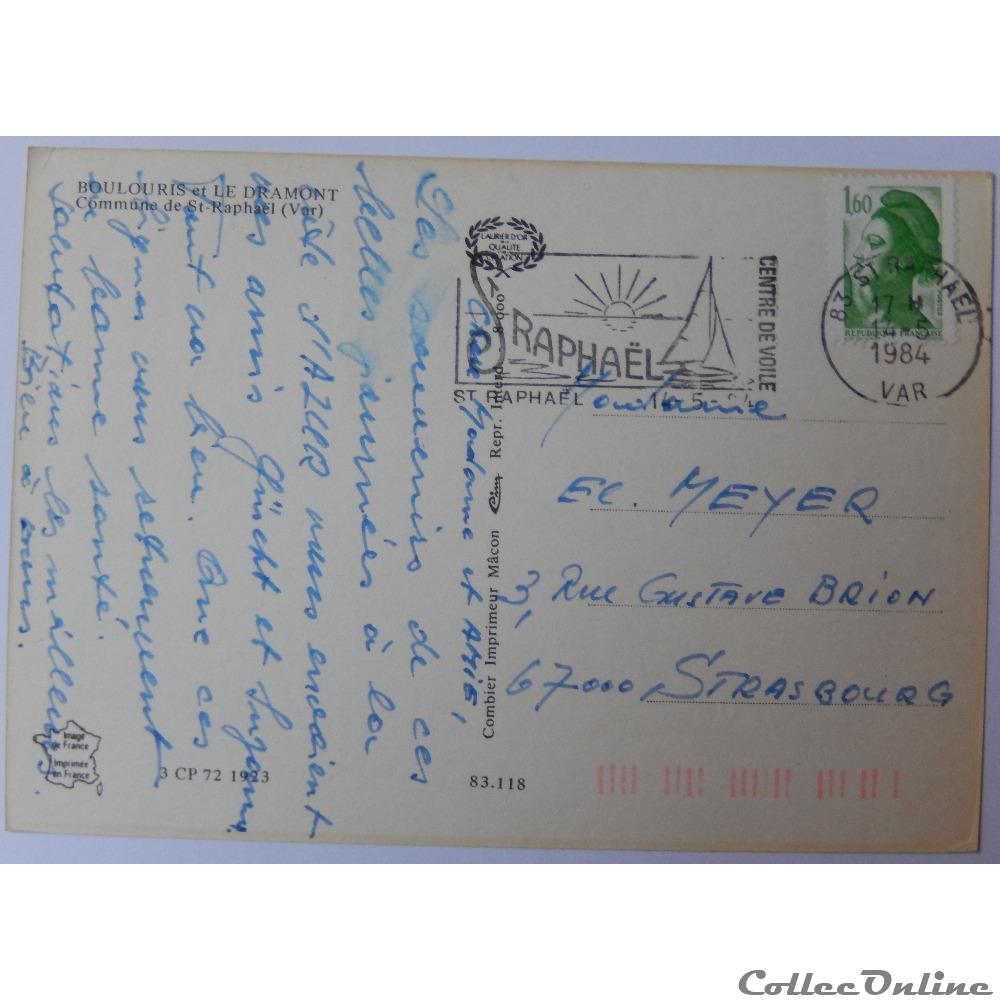 BOULOURIS et LE DRAMONT
Commune de St-Raphaël (Var)
Chère Madame et AMIE,
Les souvenirs de ces
belles journées à la
côte d'AZUR nous envoient
nos amis Güscht et Suzanne
tout va bien. Que ces
lignes vous retrouvent
en bonne santé.
Salutations les meilleures.
Bien à vous.
LAURIER D'OR
DE LA
QUALITE
RAPHAËL
CENTRE DE VOILE
ST RAPHAËL 14-5-84
1,60
REPUBLIQUE FRANÇAISE
83 ST RAPHAEL
17 H
1984
VAR
Combier Imprimeur Mâcon Cim Repr. Interd.
Madame
EC. MEYER
3, RUE GUSTAVE BRION
67000 STRASBOURG
Image
de France
Imprimée
en France
3 CP 72 1923
83.118
CollecOnline